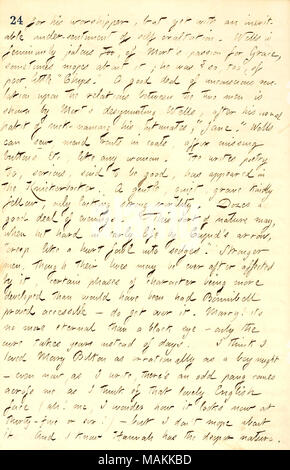 24 for his worshipper, but yet with an inevit-
able under-sentiment of self exaltation. Wells is
femininely jealous too, of Mort's passion for Grace,
sometimes mopes about it; he was so, too, of
poor little "Chips". A good deal of unconscious reve-
lation upon the relations between the two men is
shown by Mort's designating Wells, after his usual
habit of nick-naming his intimates, "Jane." Wells
can sew mend rents in coats, affix missing
buttons &c, like any woman. Too writes poetry
too, serious, said to be good, has appeared in
the Knickerbocker. A gentle, quiet, grave kindly
fellow, only lacking strong virility. Does a
good deal of
nature may,
when hit hard in early life by Cupid's arrows,
"creep like a hurt fowl into sedges." Stronger
men, though their lives may be ever after affected
by it, certain phases of character being more
developed than would have been had
proved accessible — do get over it. Marry! it's
no more eternal than a black eye — only the
cure takes years instead of days. I think I
loved Mary Bolton as irrationally as a boy might
— even now as I write, there's an odd pang comes
across me as I think of that lovely English
face (ah! me, I wonder how it looks now at
thirty-five or six!) — but I don't mope about
it. And I know Hannah has the deeper nature.
alamy
Image ID: MAKKBD
www.alamy.com